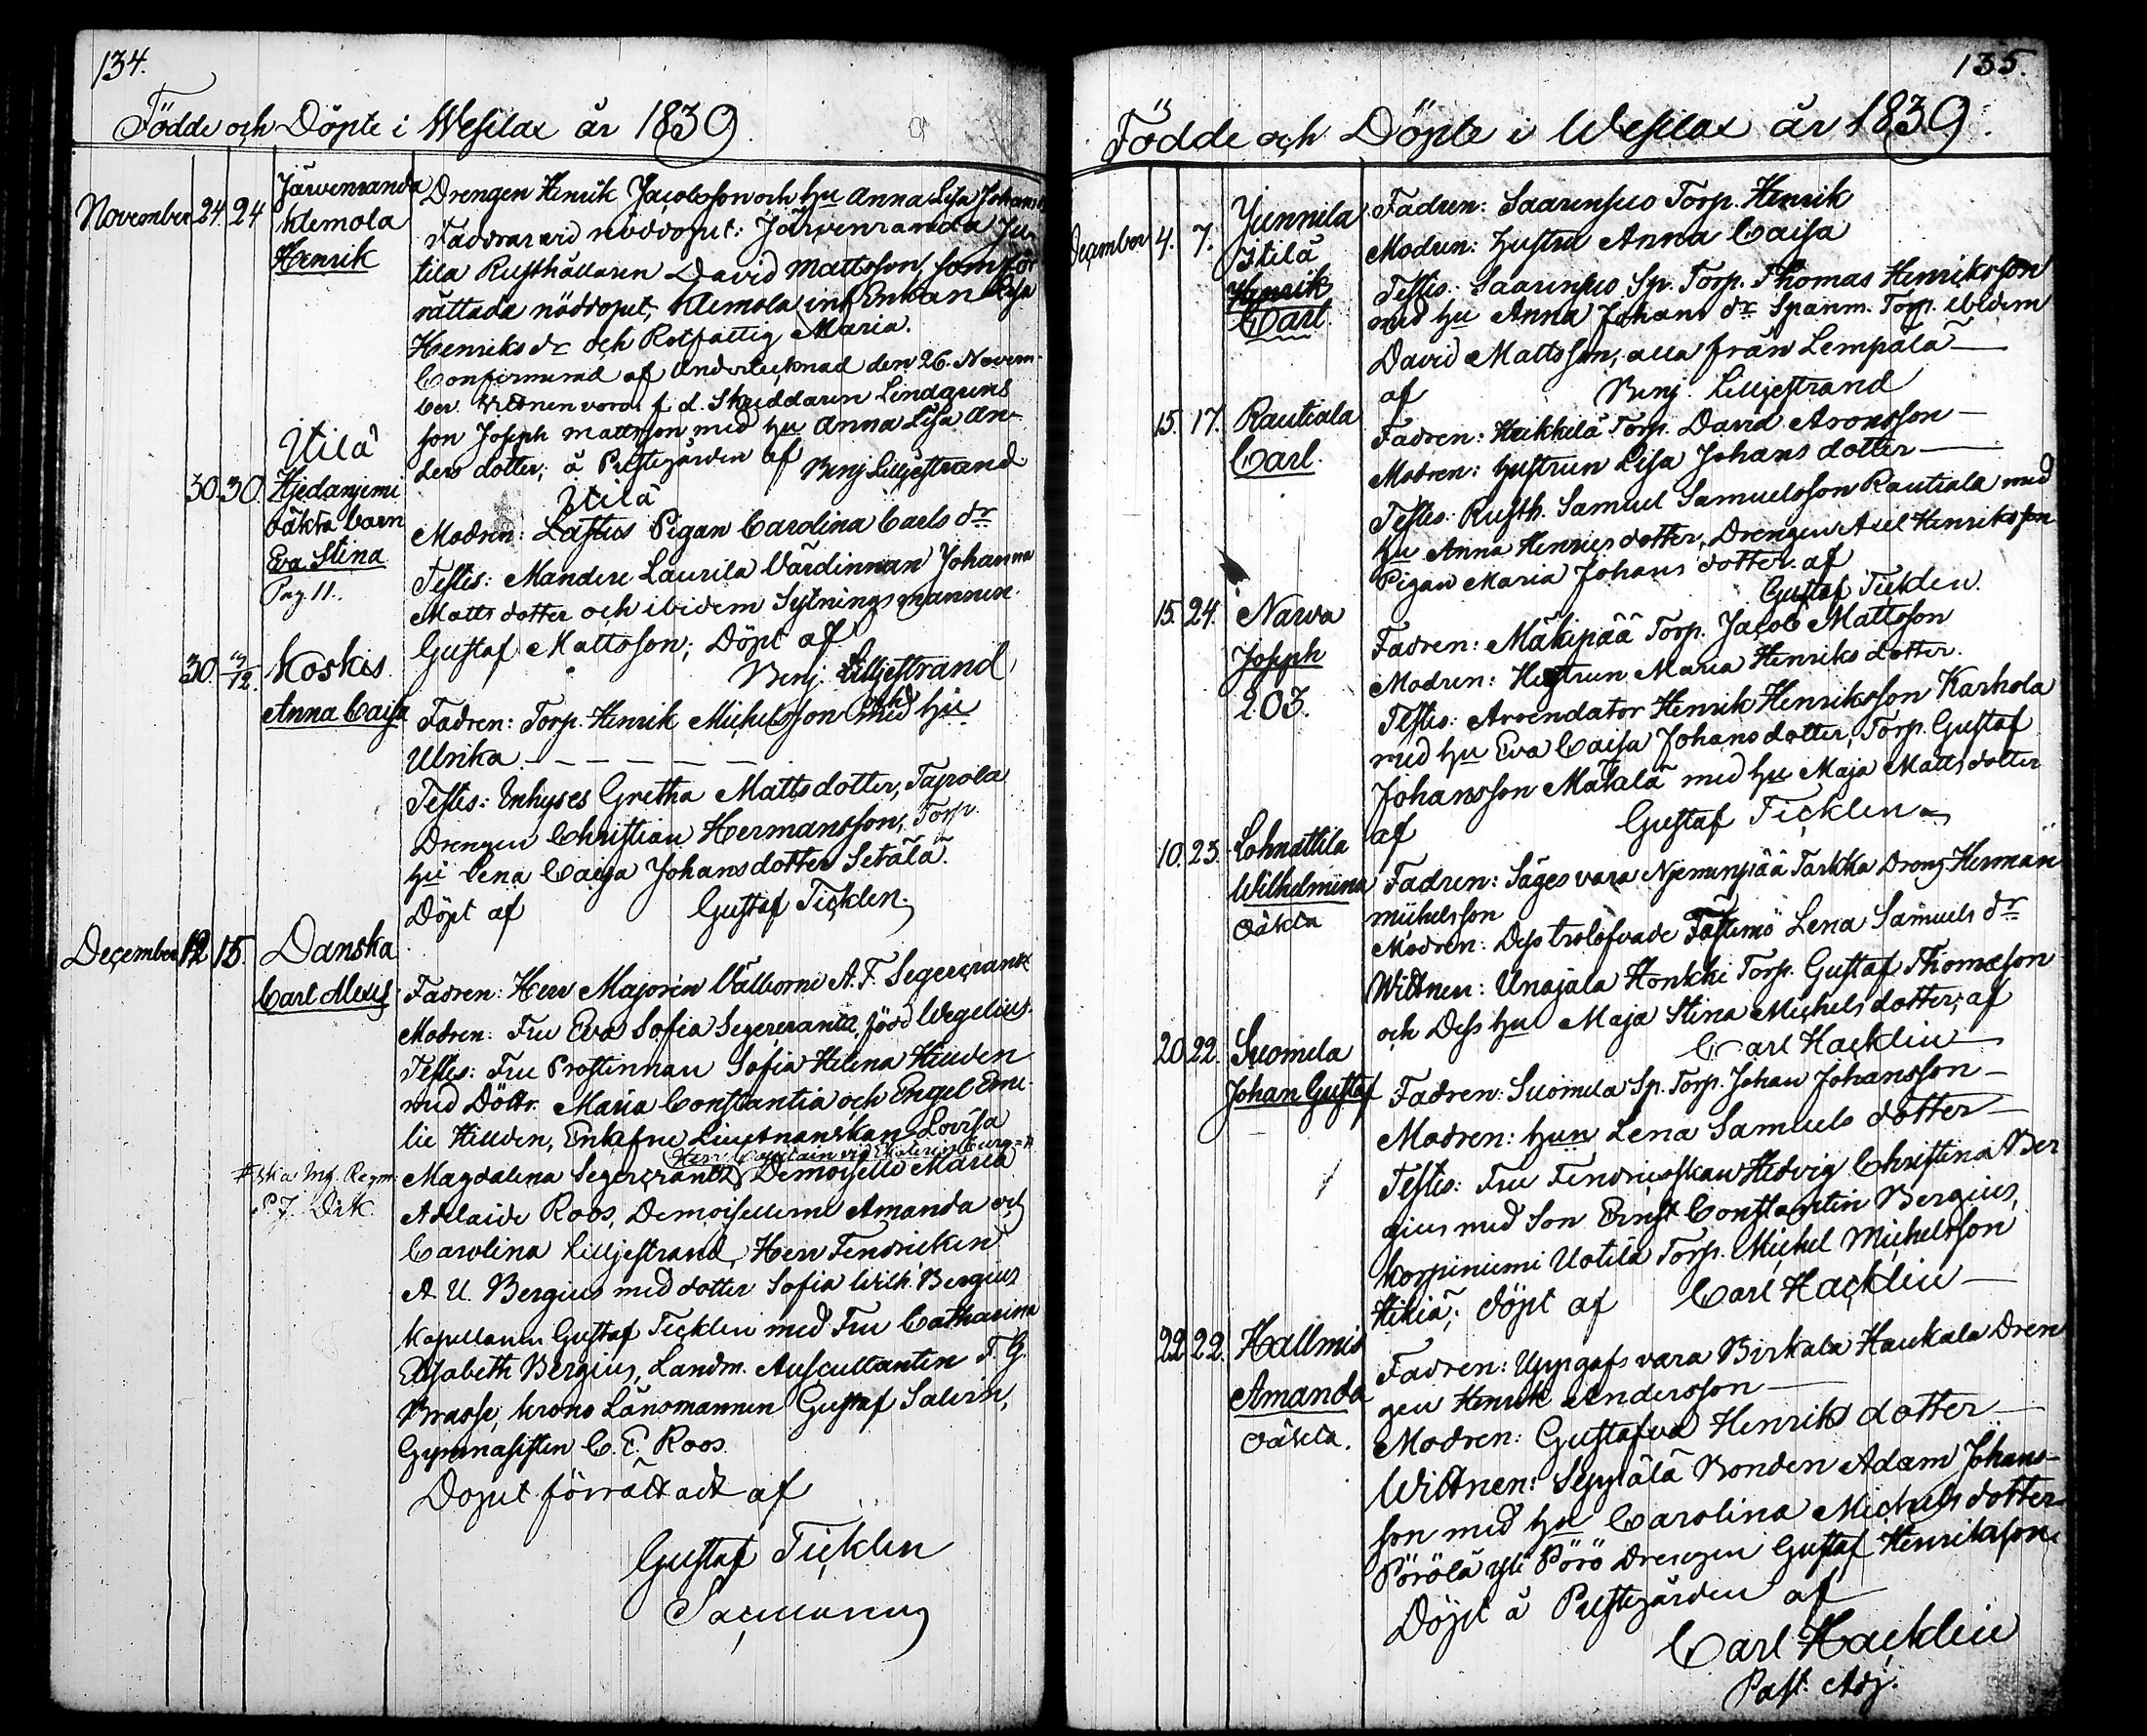 134.
Födde och Döpte i Wesilax år 1839.
November 24. 24
Järvenranda
Klemola
Henrik
Drengen Henrik Jacobsson och hu Anna Lisa Johans
Faddrar vid nöddopet: Järvenranda Ju-
tila Rusthållaren David Mattsson, som för
rättada nöddopet, Klemola inh. Enkan Lisa
Henriks dr och Rotfattig Maria.
Confirmerad af Undertecknad den 26. Novem-
ber. Vittnen voro f. d. Skräddaren Lindqvists
son Joseph Mattsson med hu Anna Lisa An-
ders dotter; å Prestgården af
Benj Lilljestrand.
30. 30.
Utila
Hjedanjemi
oäkta barn
Eva Stina
Pag. 11.
Utila
Modren: Lastus Pigan Carolina Carls dr
Testes: Mandere Laurila Värdinnan Johanna
Matts dotter och ibidem Sytningsmannen
Gustaf Mattsson; Döpt af
Benj. Lilljestrand,
30. 12.
Koskis
Anna Caisa
Fadren: Torp. Henrik Michelsson med hu
Ulrika. — — — — — —
Testes: Inhyses Gretha Mattsdotter, Tapola
Drengen Christian Hermansson, Torp.
hu Lena Caisa Johansdotter Setälä.
Döpt af Gustaf Ticklen.
December 12 15.
Danska
Carl Alexis
Fadren: Herr Majoren Välborne A. F. Segercrantz
Modren: Fru Eva Sofia Segercrantz, född Wegelius.
Testes: Fru Prostinnan Sofia Helena Heurlen
med Döttr. Maria Constantia och Engel Eme-
lie Heurlen, Enkefru Lieutnantskan Lovisa
Herr Capitain vid
Magdalena Segercrantz, Demoiselle Maria
#ska Inf. Regm:
Adelaide Roos, Demoisellerne Amanda och
Carolina Lilljestrand, Herr Fendricken
A. U. Bergius med dotter Sofia Wilh. Bergius
Kapellanen Gustaf Ticklen med Fru Catharina
Elisabeth Bergius, Landm. Auscultanten F. G.
Brasse, Krono Länsmannen Gustaf Salvin,
Gymnasisten C. E. Roos.
Dopet förrättadt af
Gustaf Ticklen
135.
Födde och Döpte i Wesilax år 1839.
December 4. 7.
Junnila
Itilä
Henrik
Carl
Fadren: Saarensuo Torp. Henrik
Modren: Hustru Anna Caisa
Testes: Saarensuo Sp. Torp. Thomas Henriksson
med hu Anna Johans dr Spanm. Torp. ibidem
David Mattsson, alla från Lempälä —
af Benj. Lilljestrand
15. 17.
Rautiala
Carl.
Fadren: Heikkilä Torp. David Aronsson —
Modren: Hustrun Lisa Johans dotter —
Testes: Rusth. Samuel Samuelsson Rautiala med
hu Anna Henricsdotter, Drengen Axel Henriksson
Pigan Maria Johans dotter. af
Gustaf Ticklen.
15. 24.
Narva
Joseph
203.
Fadren: Mäkipää Torp. Jacob Mattsson
Modren: Hustrun Maria Henriksdotter.
Testes: Arrendator Henrik Henriksson Karhola
med hu Eva Caisa Johansdotter, Torp. Gustaf
Johansson Mátälä med hu Maja Mattsdotter
af Gustaf Ticklen
10. 25.
Lohnattila
Wilhelmina
oäkta
Fadren: Säges vara Njemenpää Tarkka Dreng Herman
Michelsson
Modren: Dess trolofvade Fästemö Lena Samuels dr
Wittnen: Unajala Honkki Torp. Gustaf Thomæson
och Dess hu Maja Stina Michelsdotter; af
Carl Hacklin
20. 22.
Suomela
Johan Gustaf
Fadren: Suomela Sp. Torp. Johan Johansson —
Modren: hun Lena Samuels dotter —
Testes: Fru Fendricsskan Hedvig Christina Ber
gius med Son Ernst Constantin Bergius,
Korpiniemi Uotila Torp. Michel Michelsson
Hikiä; döpt af Carl Hacklin —
22. 22.
Hallmis
Amanda
oäkta.
Fadren: Uppgafs vara Birkala Haukala Dren
gen Henrik Andersson —
Modren: Gustafva Henriks dotter —
Wittnen: Seppälä Bonden Adam Johans-
son med hu Carolina Michelsdotter
Pörölä yli Pörö Drengen Gustaf Henriksson.
Döpt å Prestgården af
Carl Hacklin
Past. Adj.